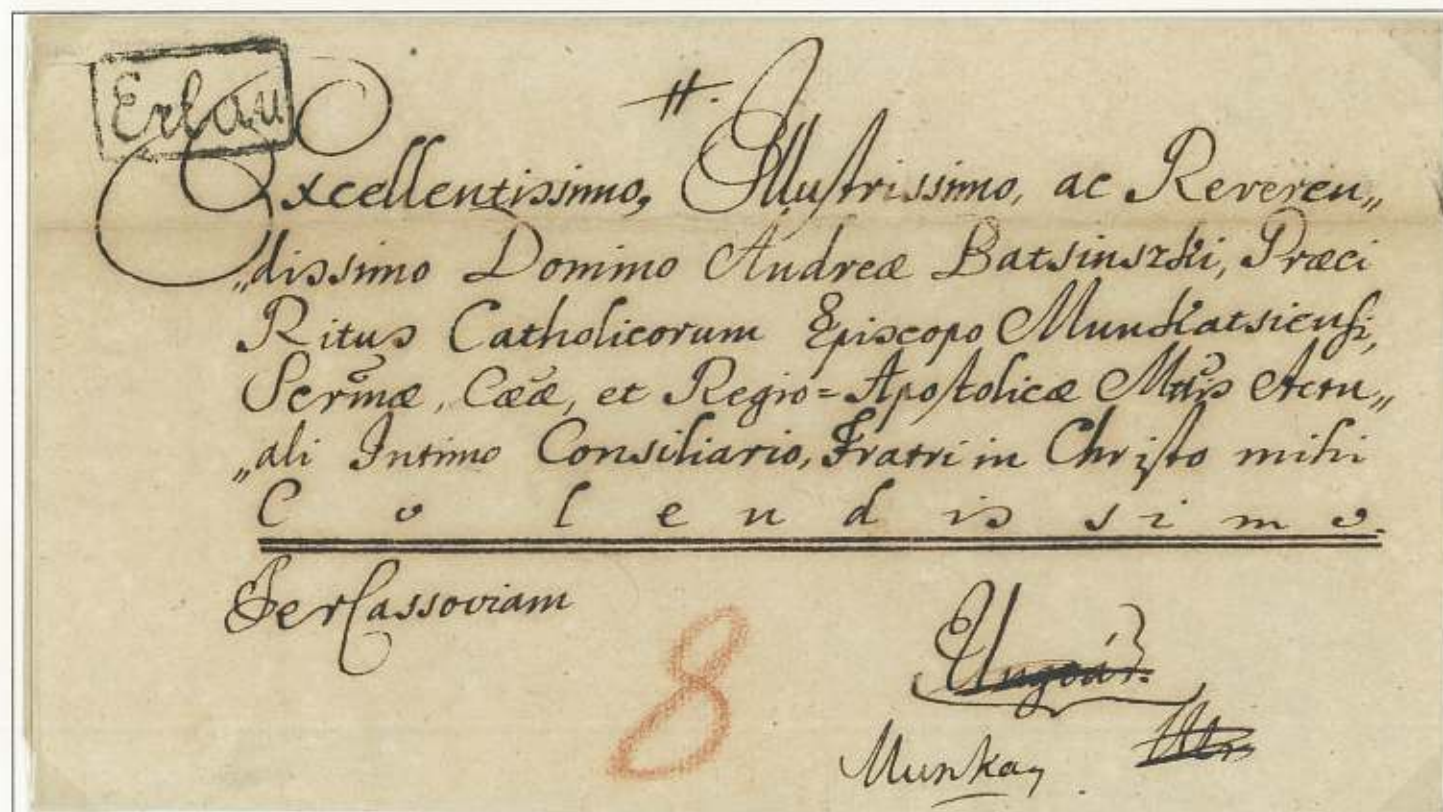 Erlau
Excellentissimo, Illustrissimo, ac Reveren„
„dissimo Domino Andreæ Batsinszki, Græci
Ritus Catholicorum Episcopo Munkatsiensi,
Sermæ, Cææ, et Regio=Apostolicæ Mttis Actu„
„ali Intimo Consiliario, Fratri in Christo mihi
Colendissimo.
Per Cassoviam
8
Ungvár.
Munkay